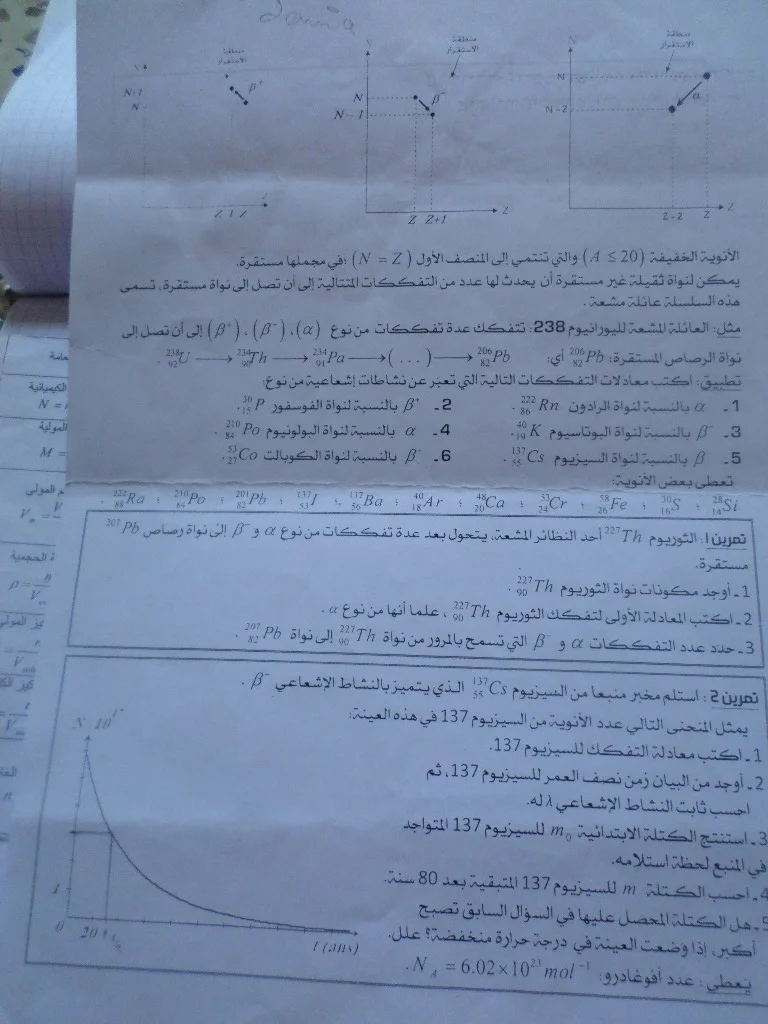 منطقة
الاستقرار
N
N+1
N
β⁺
Z
منطقة
الاستقرار
N
N
N−1
β⁻
Z Z+1
Z
منطقة
الاستقرار
N
N−2
α
Z−2 Z
Z
الأنوية الخفيفة (A ≤ 20) والتي تنتمي إلى المنصف الأول (N = Z) ؛في مجملها مستقرة.
يمكن لنواة ثقيلة غير مستقرة أن يحدث لها عدد من التفككات المتتالية إلى أن تصل إلى نواة مستقرة، تسمى
هذه السلسلة عائلة مشعة.
مثل: العائلة المشعة لليورانيوم 238: تتفكك عدة تفككات من نوع (α)، (β⁻)، (β⁺) إلى أن تصل إلى
نواة الرصاص المستقرة: ²⁰⁶₈₂Pb أي: ²³⁸₉₂U ⟶ ²³⁴₉₀Th ⟶ ²³⁴₉₁Pa ⟶ (...) ⟶ ²⁰⁶₈₂Pb
تطبيق: اكتب معادلات التفككات التالية التي تعبر عن نشاطات إشعاعية من نوع:
1 ـ α بالنسبة لنواة الرادون ²²²₈₆Rn . 2 ـ β⁺ بالنسبة لنواة الفوسفور ³⁰₁₅P .
3 ـ β⁻ بالنسبة لنواة البوتاسيوم ⁴⁰₁₉K . 4 ـ α بالنسبة لنواة البولونيوم ²¹⁰₈₄Po .
5 ـ β بالنسبة لنواة السيزيوم ¹³⁷₅₅Cs . 6 ـ β⁻ بالنسبة لنواة الكوبالت ⁵³₂₇Co .
تعطى بعض الأنوية:
²⁸₁₄Si ؛ ³⁰₁₆S ؛ ⁵⁸₂₆Fe ؛ ⁵³₂₄Cr ؛ ⁴⁸₂₀Ca ؛ ⁴⁰₁₈Ar ؛ ¹³⁷₅₆Ba ؛ ¹³⁷₅₃I ؛ ²⁰¹₈₂Pb ؛ ²¹⁰₈₄Po ؛ ²²²₈₈Ra .
تمرين 1: الثوريوم ²²⁷Th أحد النظائر المشعة، يتحول بعد عدة تفككات من نوع α و β⁻ إلى نواة رصاص ²⁰⁷Pb
مستقرة.
1 ـ أوجد مكونات نواة الثوريوم ²²⁷₉₀Th .
2 ـ اكتب المعادلة الأولى لتفكك الثوريوم ²²⁷₉₀Th ، علما أنها من نوع α .
3 ـ حدد عدد التفككات α و β⁻ التي تسمح بالمرور من نواة ²²⁷₉₀Th إلى نواة ²⁰⁷₈₂Pb .
تمرين 2 : استلم مخبر منبعا من السيزيوم ¹³⁷₅₅Cs الذي يتميز بالنشاط الإشعاعي β⁻ .
يمثل المنحنى التالي عدد الأنوية من السيزيوم 137 في هذه العينة:
1 ـ اكتب معادلة التفكك للسيزيوم 137.
2 ـ أوجد من البيان زمن نصف العمر للسيزيوم 137، ثم
احسب ثابت النشاط الإشعاعي λ له.
3 ـ استنتج الكتلة الابتدائية m₀ للسيزيوم 137 المتواجد
في المنبع لحظة استلامه.
4 ـ احسب الكتلة m للسيزيوم 137 المتبقية بعد 80 سنة.
5 ـ هل الكتلة المحصل عليها في السؤال السابق تصبح
أكبر، إذا وضعت العينة في درجة حرارة منخفضة؟ علل.
يعطى : عدد أفوغادرو: N_A = 6.02×10²³ mol⁻¹ .
1
0
20
t (ans)
الكيميائية
المولية
م المولي
ة الحجمية